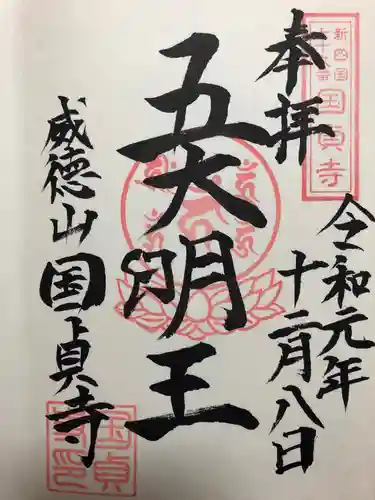 奉拝
新四国
七十六番
国貞寺
令和元年
十二月八日
五大明王
威徳山
国貞寺
国貞
寺印